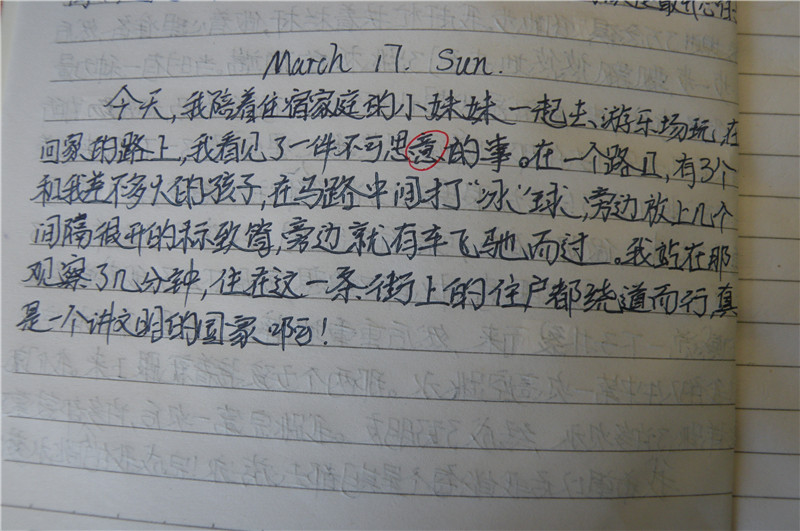 March 17. Sun.
今天,我陪着住宿家庭的小妹妹一起去游乐场玩,在
回家的路上,我看见了一件不可思意的事。在一个路口,有3个
和我差不多大的孩子,在马路中间打"冰"球,旁边放上几个
间隔很开的标致筒,旁边就有车飞驰而过。我站在那
观察了几分钟,住在这一条街上的住户都绕道而行,真
是一个讲文明的国家啊!